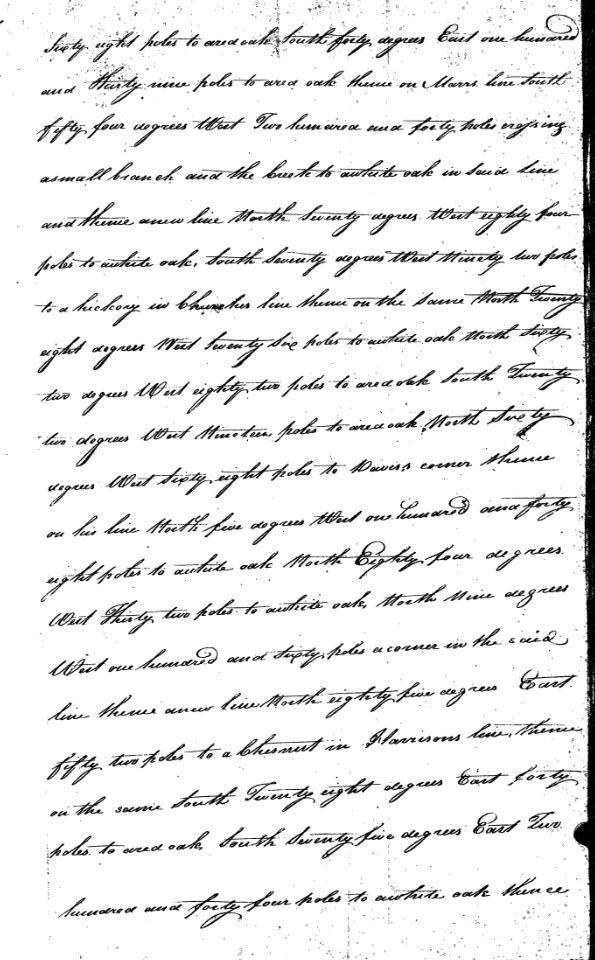 Sixty eight poles to ared oak South forty degrees East one hundred
and Thirty nine poles to ared oak thence on Marrs line South
fifty four degrees West Two hundred and forty poles crossing
asmall branch and the Creek to awhite oak in said line
and thence anew line North Seventy degrees West eighty four
poles to awhite oak, South Seventy degrees West Ninety two poles
to a hickory in line thence on the same North Twenty
eight degrees West Seventy Six poles to awhite oak North Sixty
two degrees West eighty two poles to ared oak South Twenty
two degrees West Nineteen poles to ared oak North Sixty
degrees West Sixty eight poles to Davis's corner thence
on his line North five degrees West one hundred and forty
eight poles to awhite oak North Eighty four degrees
West Thirty two poles to awhite oak, North Nine degrees
West one hundred and Sixty poles acorner in the said
line thence anew line North eighty five degrees East
fifty two poles to a Chesnut in Harrisons line, thence
on the same South Twenty eight degrees East forty
poles to ared oak, South Seventy five degrees East Two
hundred and forty four poles to awhite oak thence